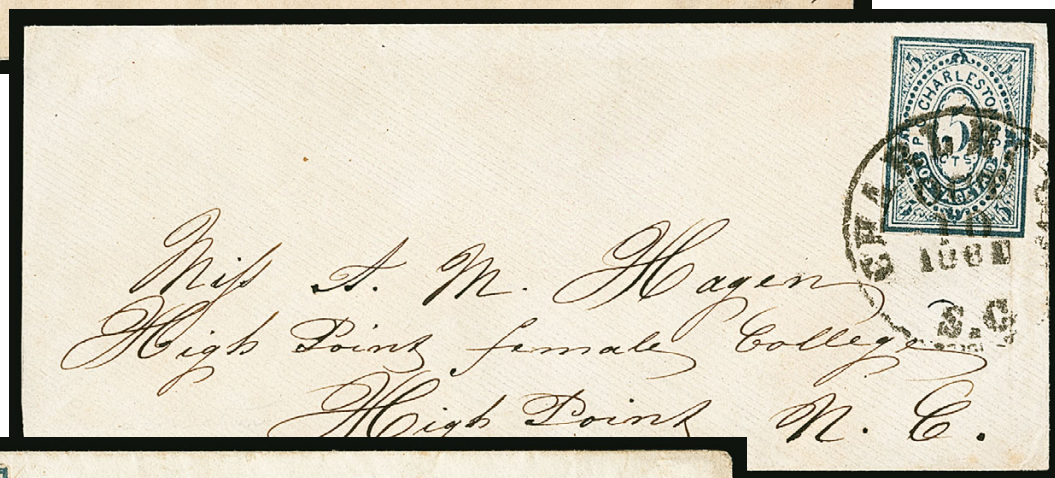 5 5
P.O. CHARLESTON S.C.
5
CTS
POSTAGE PAID
5 5
CHARLESTON
10
1861
S.C
Miſs A. M. Hagen
High Point female College
High Point N. C.